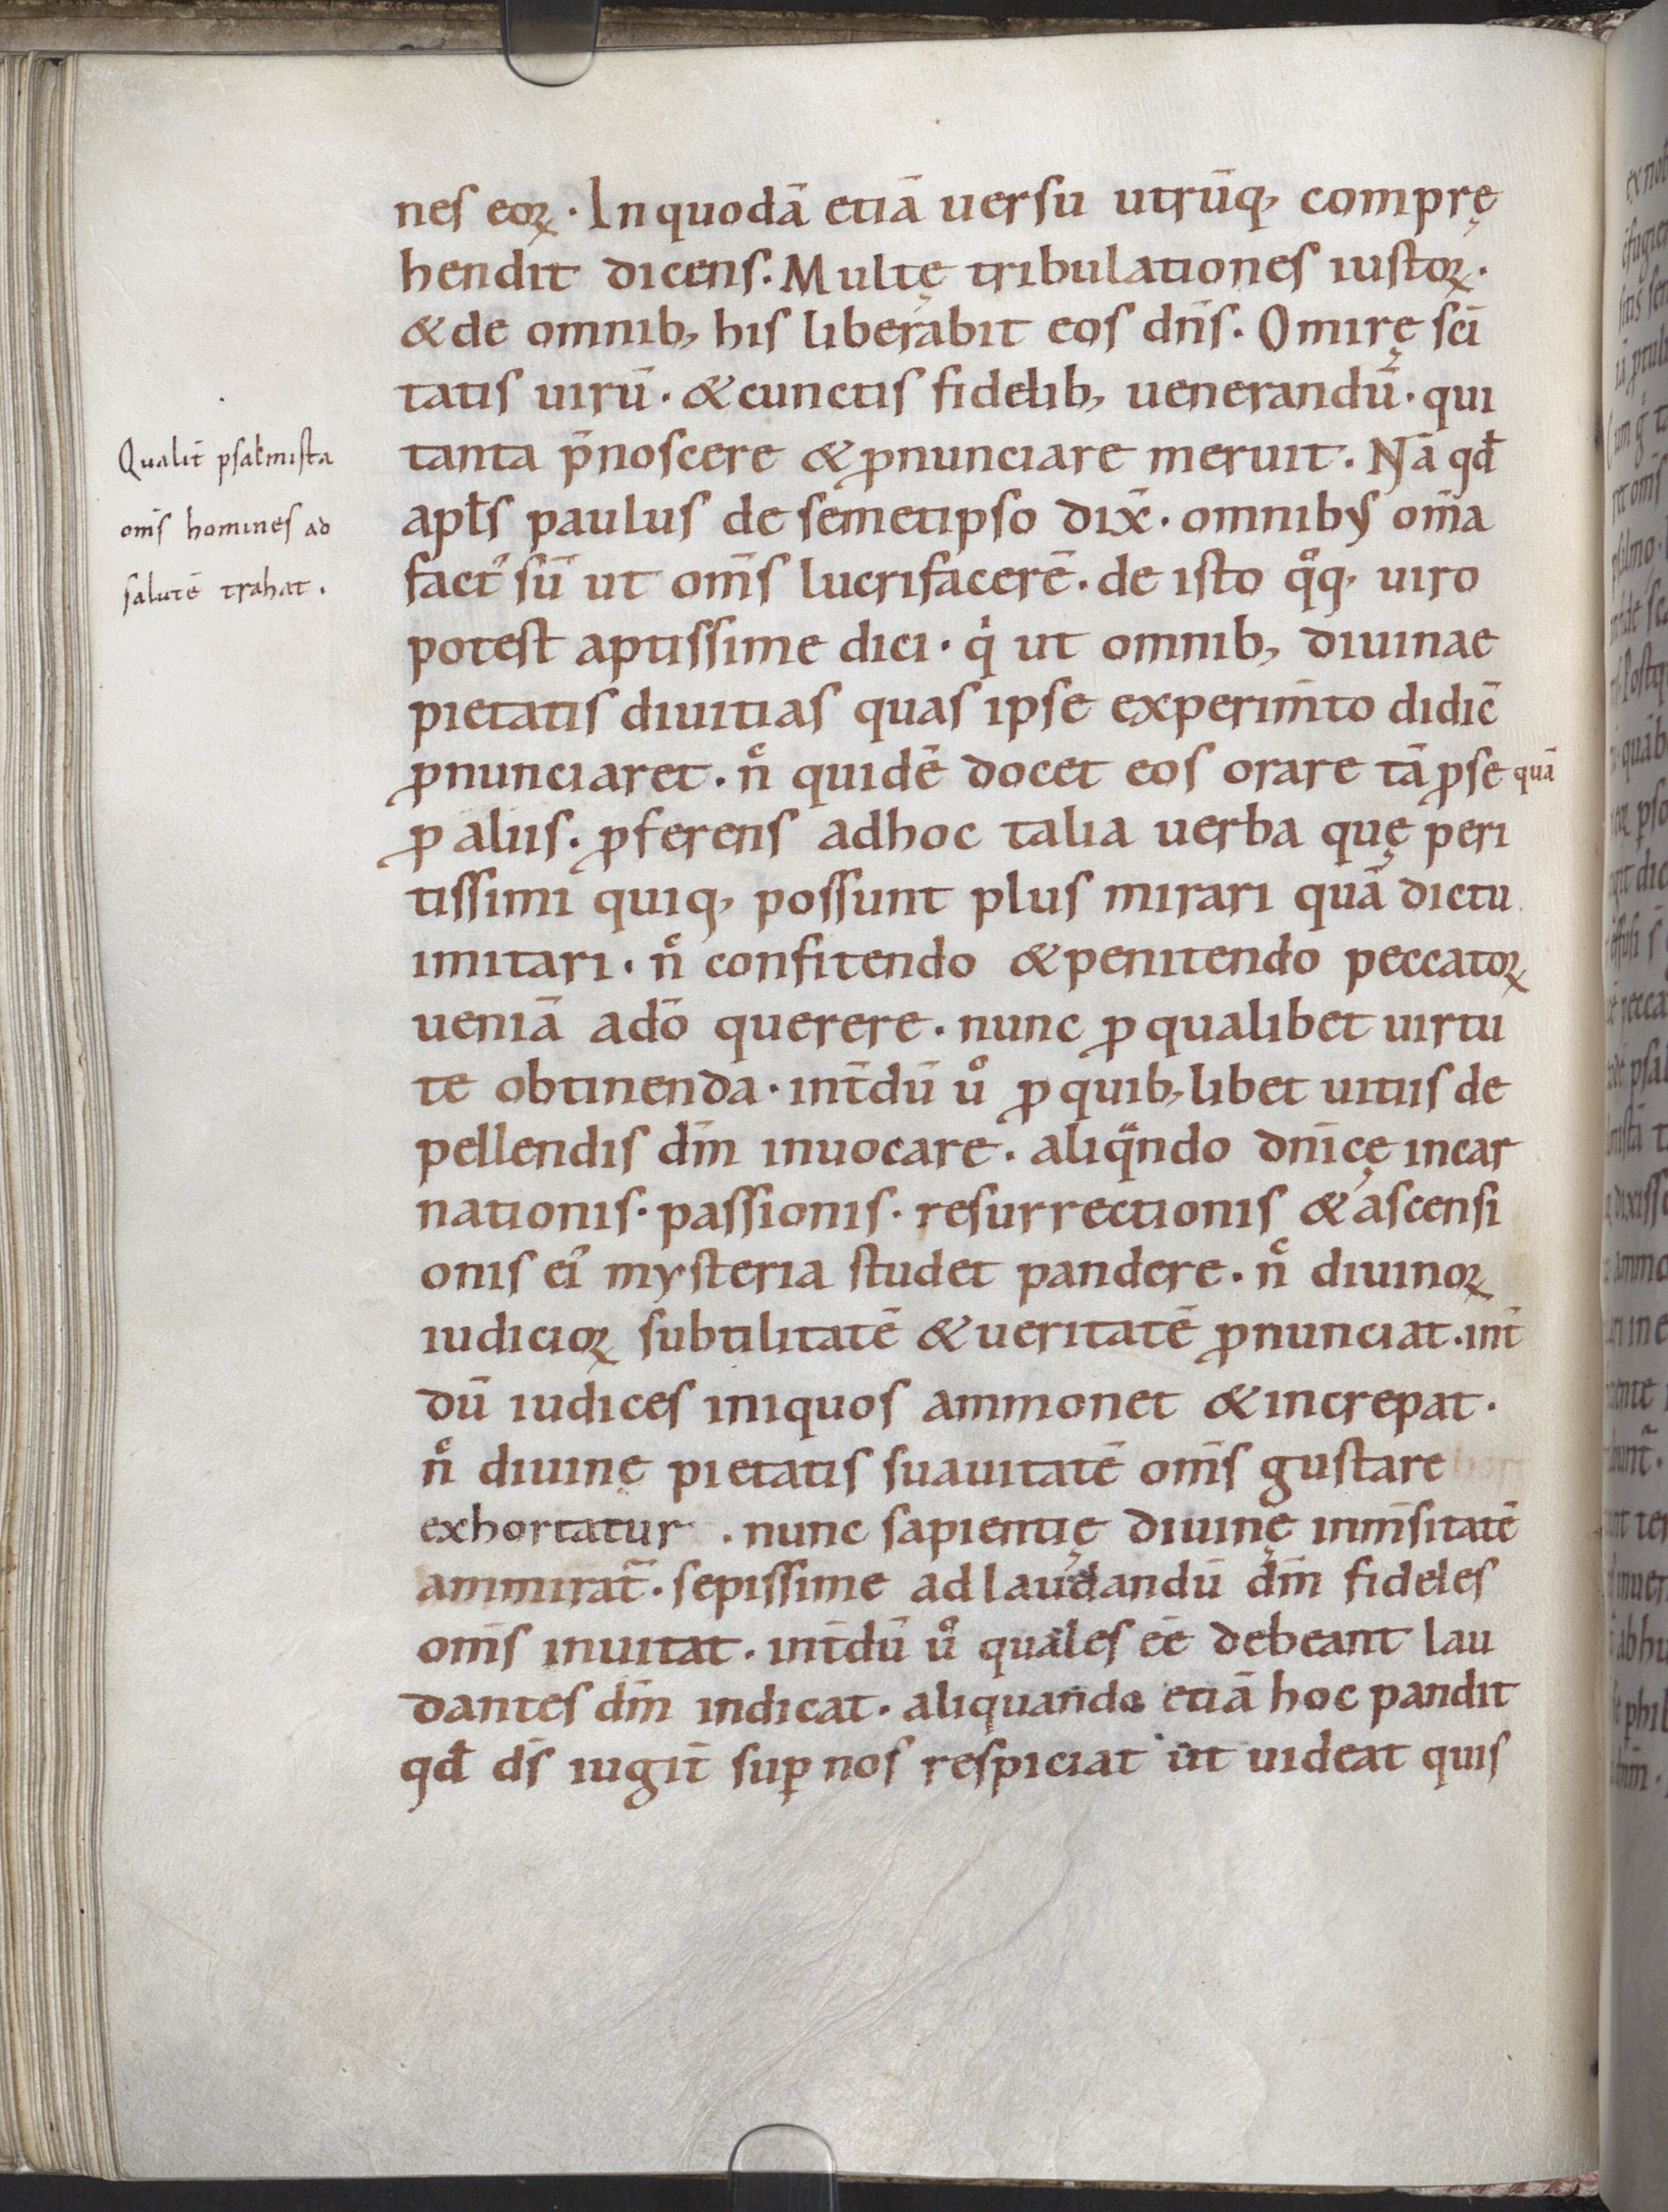 nes eoꝝ · In quodā etiā uersu utrūq; comprę
hendit dicens. Multę tribulationes iustoꝝ.
& de omnib; his liberabit eos dn̄s. O mirę sc̄i
tatis uirū · & cunctis fidelib; uenerandū · qui
tanta p̄noscere & ꝓnunciare meruit. Nā qđ
apłs paulus de semetipso dix̄ · omnibus om̄a
fact᾿ sū ut om̄s lucrifacerē · de isto qͦq; uiro
potest aptissime dici · qͥ ut omnib; diuinae
pietatis diuitias quas ipse experim̄to didic̄
ꝓnunciaret · nͨ quidē docet eos orare tā ꝓ se quā
ꝓ aliis. ꝓferens adhoc talia uerba quę peri
tissimi quiq; possunt plus mirari quā dictu
imitari · nͨ confitendo & penitendo peccatoꝝ
ueniā ad dō querere · nunc ꝓ qualibet uirtu
te obtinenda · int̄dū uͦ ꝓ quib; libet uitiis de
pellendis dm̄ inuocare · aliqͣndo dn̄icę incar
nationis · passionis · resurrectionis & ascensi
onis ei᾿ mysteria studet pandere · nͨ diuinoꝝ
iudicioꝝ subtilitatē & ueritatē ꝓnunciat · int̄
dū iudices iniquos ammonet & increpat ·
nͨ diuinę pietatis suauitatē om̄s gustare
exhortatur · nunc sapientię diuinę inm̄sitatē
ammirat̄ · sepissime ad laudandū dm̄ fideles
om̄s inuitat · int̄dū uͦ quales ēē debeant lau
dantes dm̄ indicat · aliquando etiā hoc pandit
qđ ds̄ iugit̄ suꝑ nos respiciat ut uideat quis
Qualit̄ psalmista
om̄s homines ad
salutē trahat.